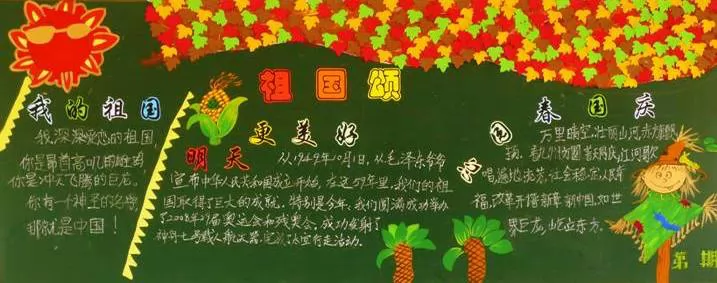 祖国颂
我的祖国
我深深爱恋的祖国,
你是昂首高吭的雄鸡
你是冲天飞腾的巨龙。
你有一个神圣的名字,
那就是中国!
明天更美好
从1949年10月1日,从毛泽东爷爷
宣布中华人民共和国成立开始,在这59年里,我们的祖
国取得了巨大的成就。特别是今年,我们圆满成功举办
了2008年29届奥运会和残奥会,成功发射了
神舟七号载人航天器,完成了太空行走活动。
春国庆
万里晴空,壮丽山河,赤旗
江河歌
唱,遍地
福,改革开播新 新中国,如世
界巨龙,屹立东方。
第 期